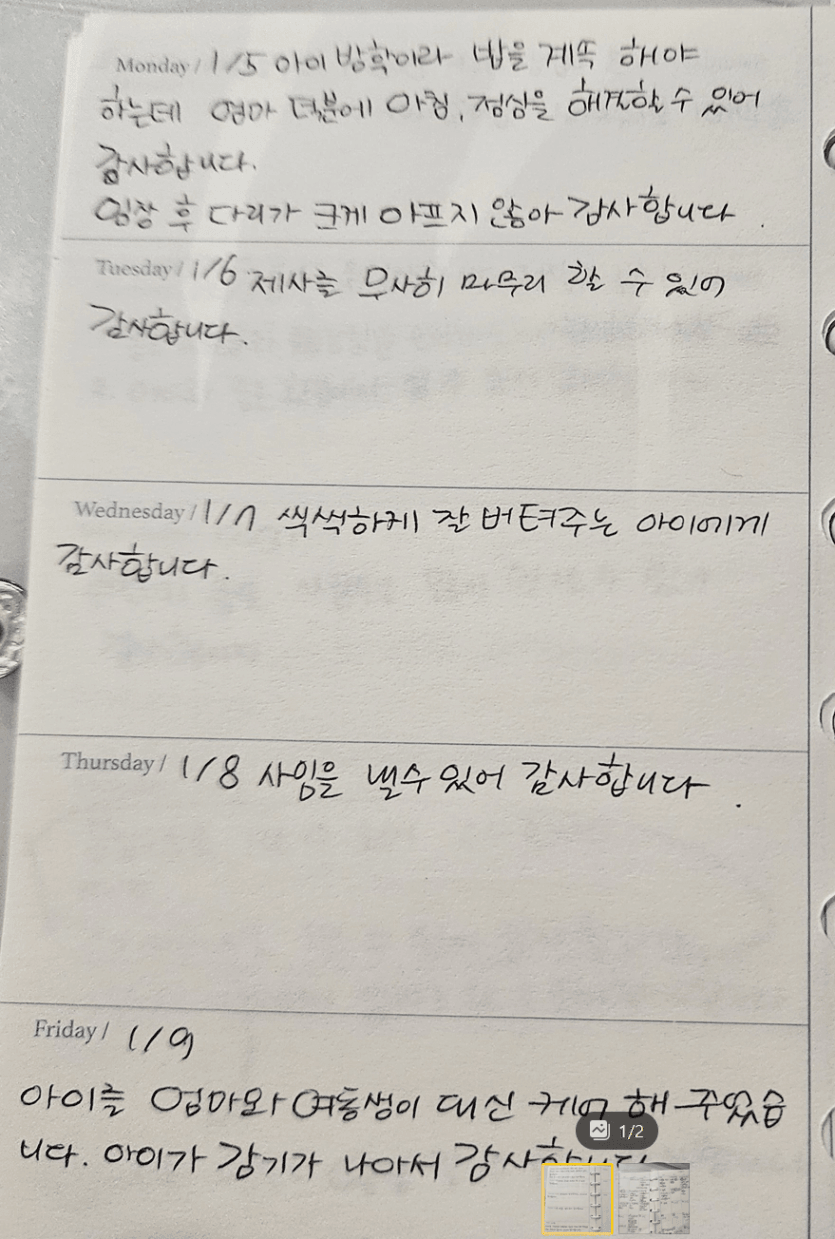 Monday / 1/5 아이 방학이라 밥을 계속 해야
하는데 엄마 덕분에 아침, 점심을 해결할 수 있어
감사합니다.
임장 후 다리가 크게 아프지 않아 감사합니다.
Tuesday / 1/6 제사를 무사히 마무리 할 수 있어
감사합니다.
Wednesday / 1/7 씩씩하게 잘 버텨주는 아이에게
감사합니다.
Thursday / 1/8 사임을 낼수 있어 감사합니다.
Friday / 1/9
아이를 엄마와 여동생이 대신 케어 해 주었습
니다. 아이가 감기가 나아서 감사합니다
1/2